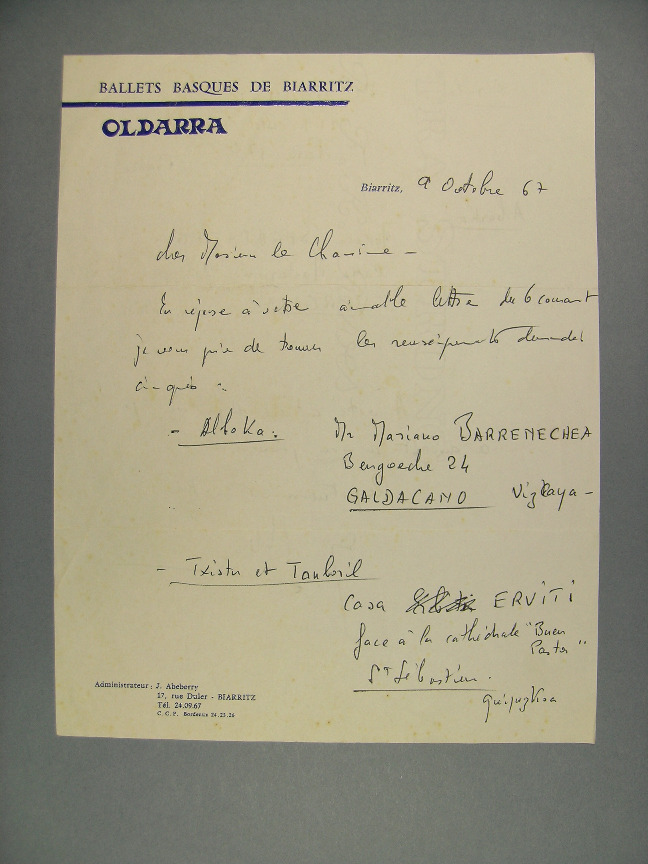 BALLETS BASQUES DE BIARRITZ
OLDARRA
Biarritz, 9 Octobre 67
cher Monsieur le Chanoine -
En réponse à votre aimable lettre du 6 courant
je vous prie de trouver les renseignements demandés
ci-après :
- Alboka : Mr Mariano BARRENECHEA
Bengoeche 24
GALDACANO Vizkaya -
- Txistu et Tamboril
Casa ERVITI
face à la cathédrale "Buen
Pastor"
St Sébastien.
Guipuzkoa
Administrateur : J. Abeberry
17, rue Duler - BIARRITZ
Tél. 24.09.67
C.C.P. Bordeaux 24.23.26